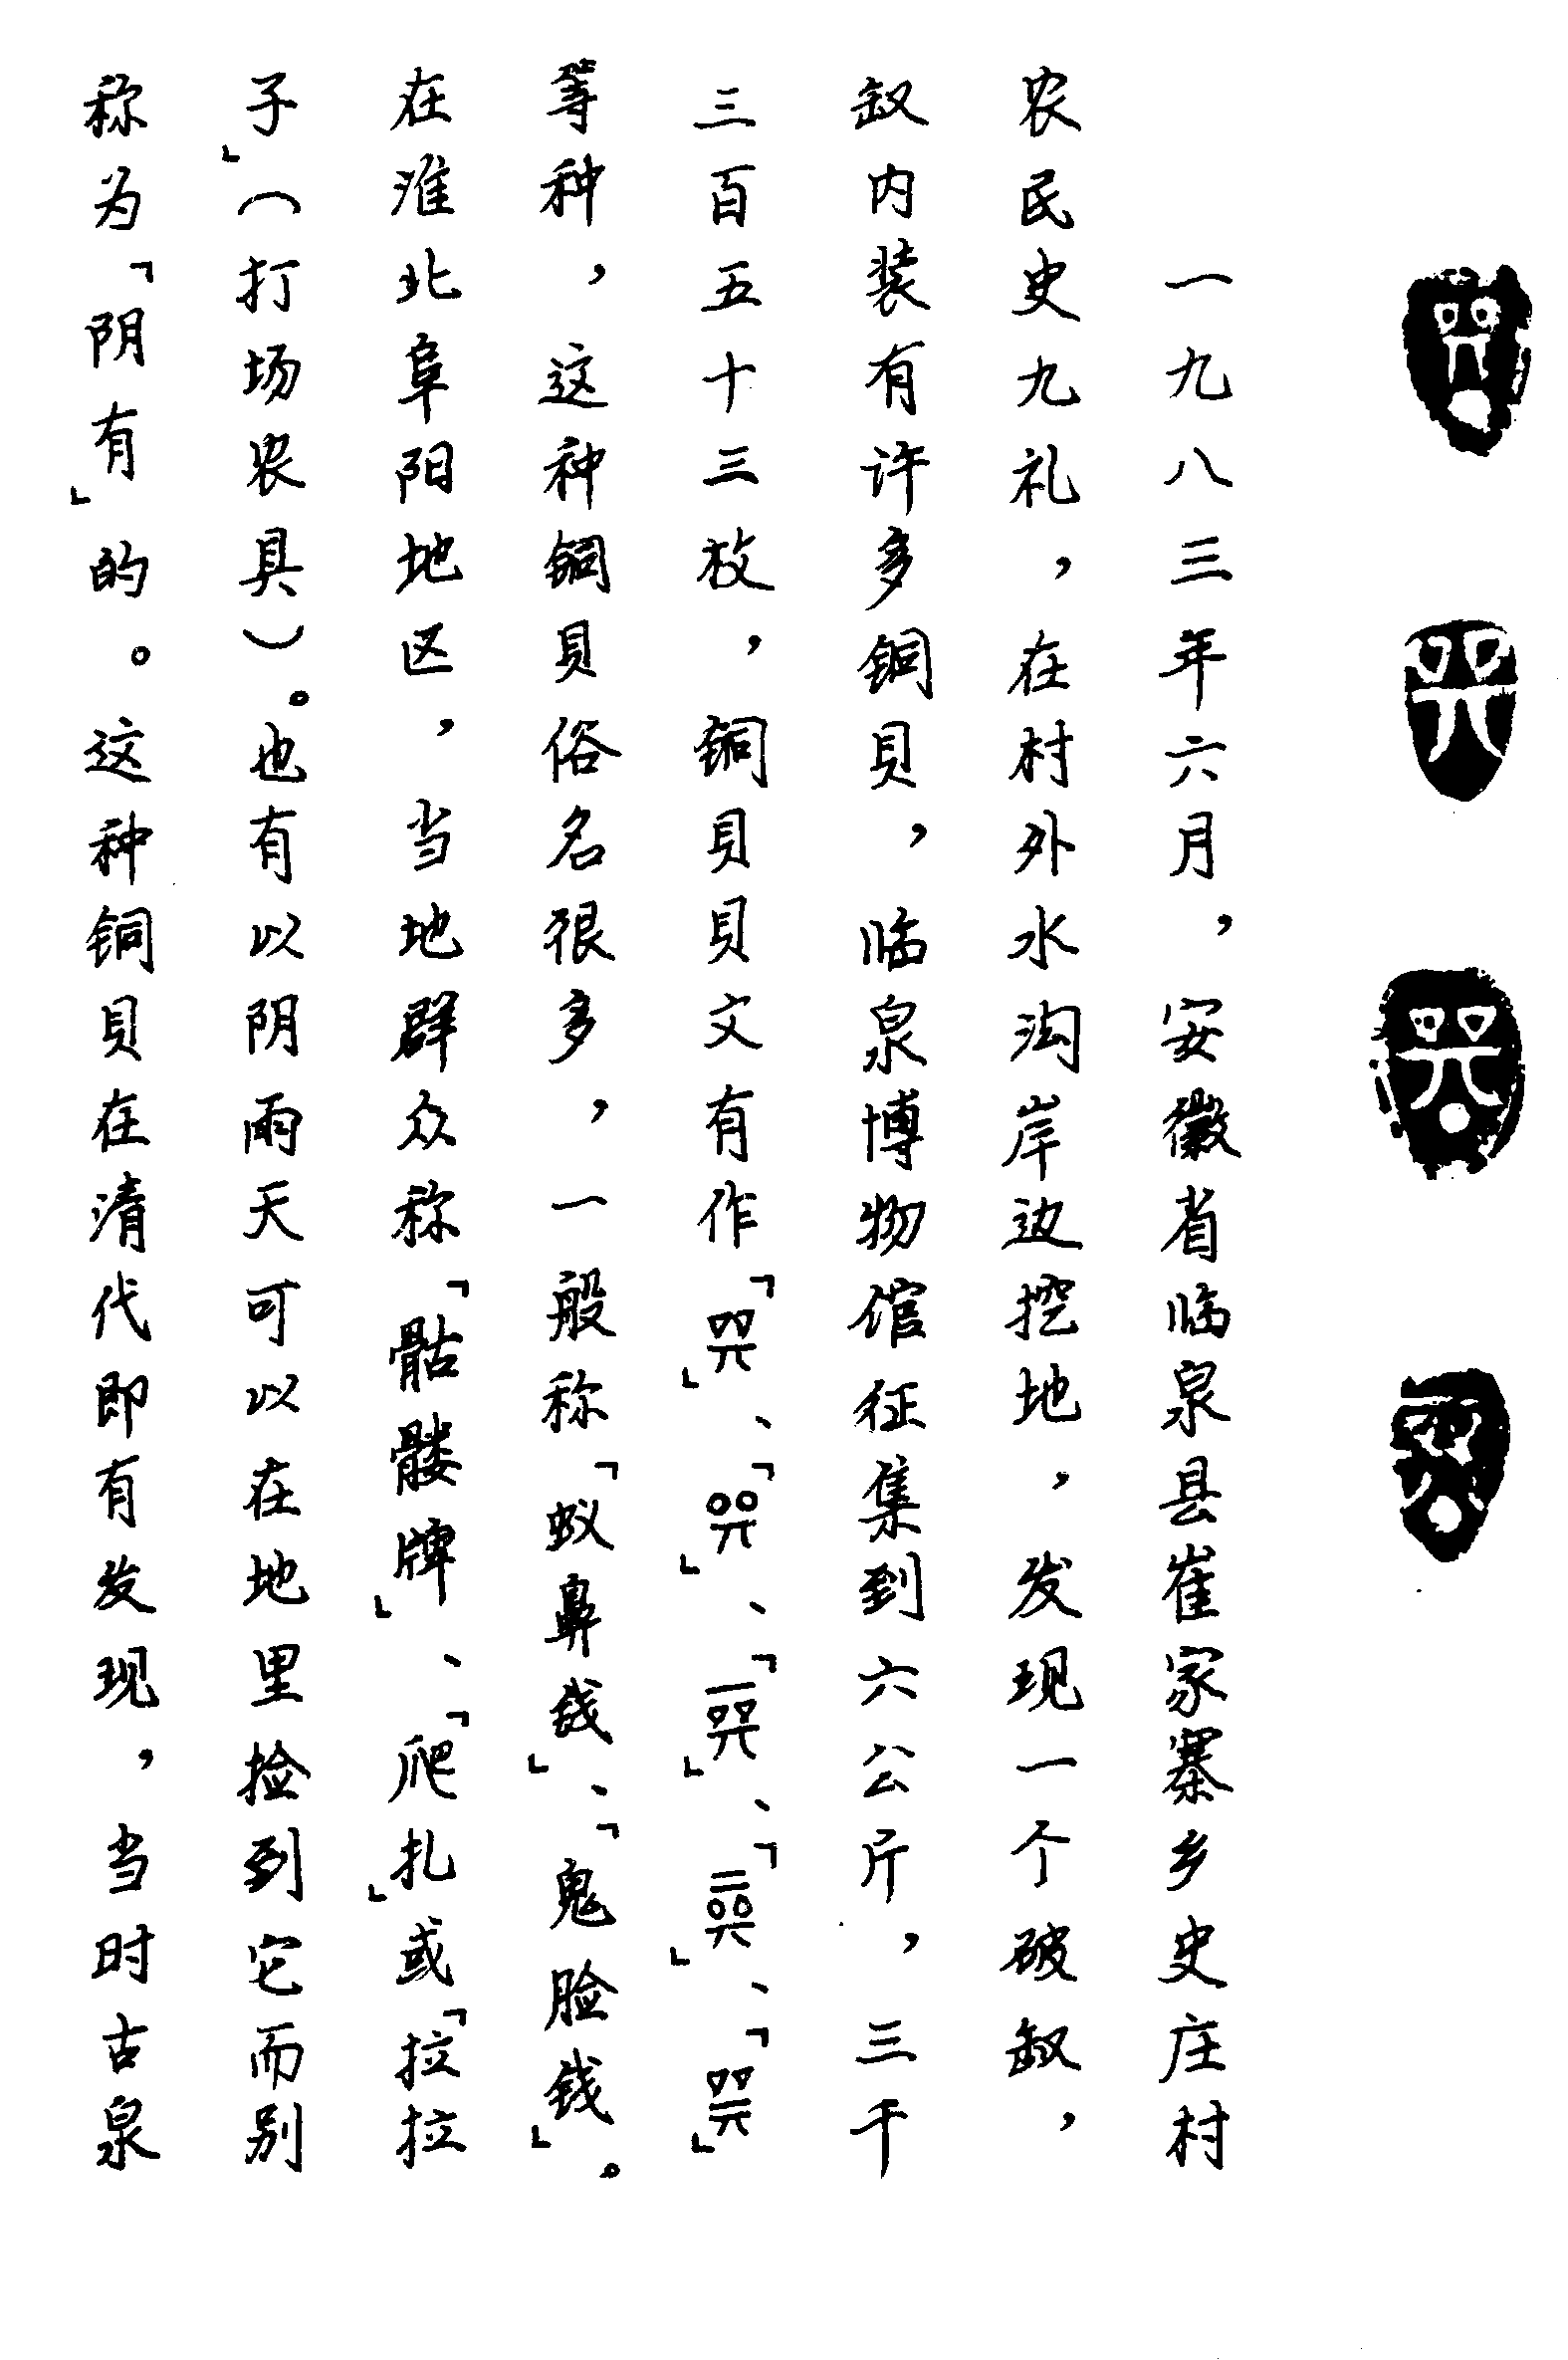 一九八三年六月，安徽省临泉县崔家寨乡史庄村
农民史九礼，在村外水沟岸边挖地，发现一个破䍃，
䍃内装有许多铜贝，临泉博物馆征集到六公斤，三千
三百五十三枚，铜贝贝文有作「」、「」、「」、「」、「」
等种，这种铜贝俗名很多，一般称「蚁鼻钱」、「鬼脸钱」。
在淮北阜阳地区，当地群众称「骷髅牌」、「爬扎」或「拉拉
子」（打场农具）。也有以阴雨天可以在地里捡到它而别
称为「阴有」的。这种铜贝在清代即有发现，当时古泉